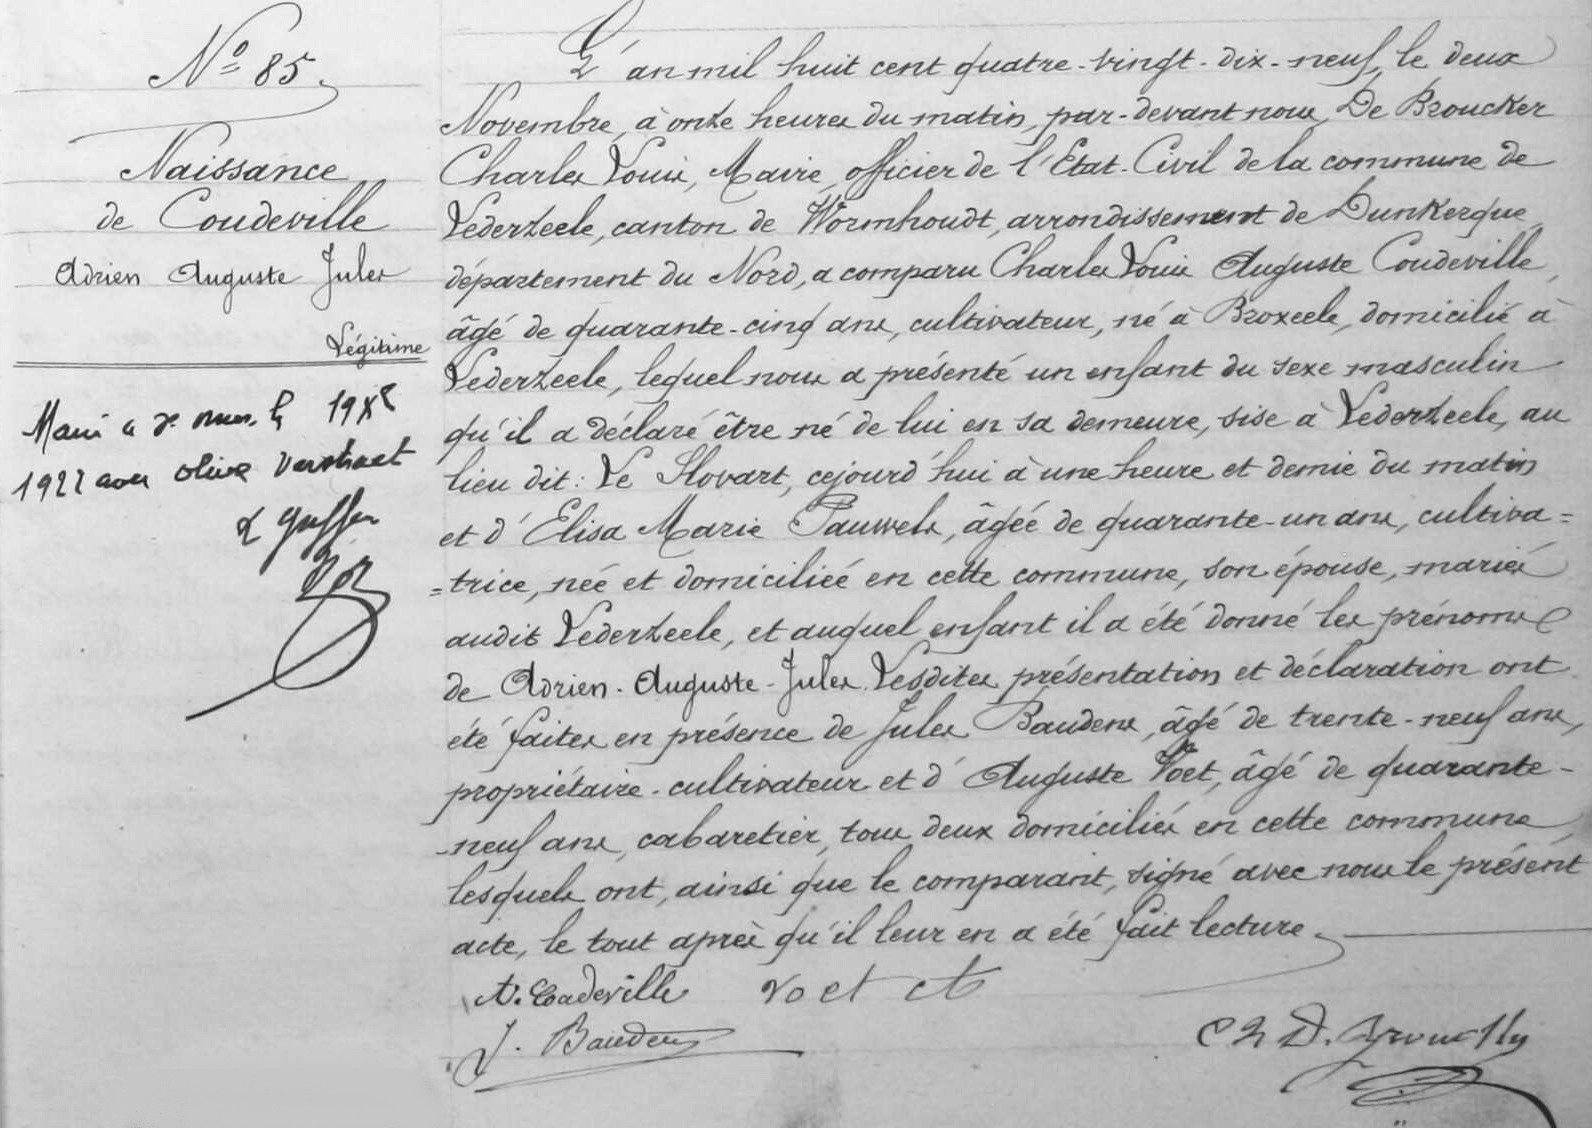 N° 85.
Naissance
de Coudeville
Adrien Auguste Jules
Légitime
Marié à 19 Xe
1922 avec Olive Verstraet
L'an mil huit cent quatre-vingt-dix-neuf, le deux
Novembre, à onze heures du matin, par-devant nous, De Broucker
Charles Louis, Maire, officier de l'Etat-Civil de la commune de
Lederzeele, canton de Wormhoudt, arrondissement de Dunkerque,
département du Nord, a comparu Charles Louis Auguste Coudeville,
âgé de quarante-cinq ans, cultivateur, né à Broxeele, domicilié à
Lederzeele, lequel nous a présenté un enfant du sexe masculin
qu'il a déclaré être né de lui en sa demeure, sise à Lederzeele, au
lieu dit: Le Slovart, cejourd'hui à une heure et demie du matin
et d'Elisa Marie Pauwels, âgée de quarante-un ans, cultiva=
=trice, née et domiciliée en cette commune, son épouse, mariés
audit Lederzeele, et auquel enfant il a été donné les prénoms
de Adrien-Auguste-Jules. Lesdites présentation et déclaration ont
été faites en présence de Jules Baudens, âgé de trente-neuf ans,
propriétaire-cultivateur et d'Auguste Voet, âgé de quarante-
-neuf ans, cabaretier, tous deux domiciliés en cette commune,
lesquels ont, ainsi que le comparant, signé avec nous le présent
acte, le tout après qu'il leur en a été fait lecture.
A. Coudeville Voet A
J. Baudens
Ch D.